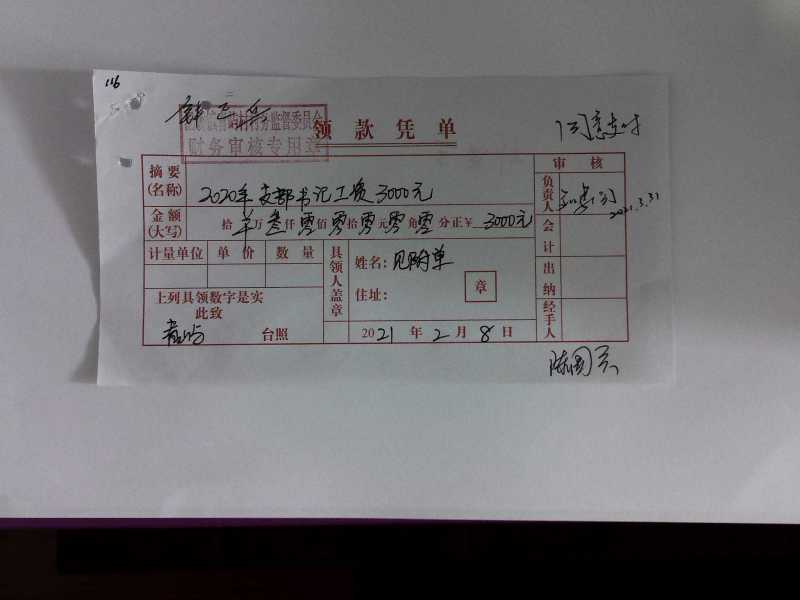 116
村务监督委员会
财务审核专用章
领款凭单
同意支付
摘要(名称) 2020年支部书记工资3000元
审核
负责人
2021.3.31
金额(大写) 拾 万叁仟零佰零拾零元零角零分正¥3000元
会计
计量单位 单价 数量
具领人盖章
姓名:见附单
住址:
章
出纳
上列具领数字是实
此致
台照
2021年2月8日
经手人